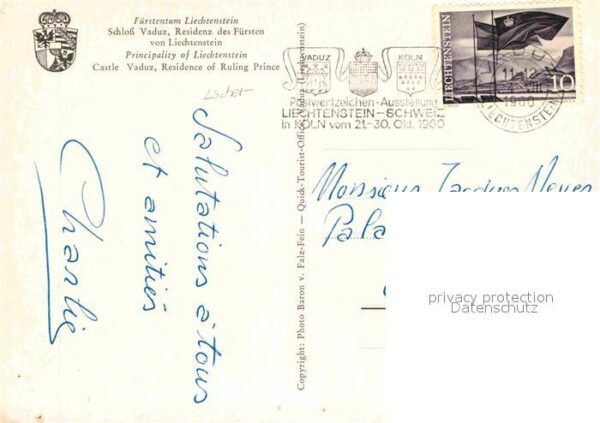 Fürstentum Liechtenstein
Schloß Vaduz, Residenz des Fürsten
von Liechtenstein
Principality of Liechtenstein
Castle Vaduz, Residence of Ruling Prince
Salutations à tous
et amitiés
Charlie
Copyright: Photo Baron v. Falz-Fein — Quick-Tourist-Office, Vaduz (Liechtenstein)
VADUZ
KÖLN
Postwertzeichen-Ausstellung
LIECHTENSTEIN-SCHWEIZ
in KÖLN vom 21-30. Okt. 1960
LIECHTENSTEIN
10
1960
LIECHTENSTEIN
Monsieur Jacques
Pala
privacy protection
Datenschutz